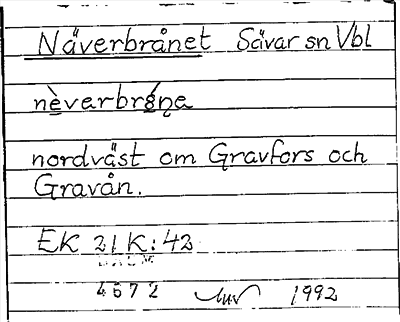 Näverbrånet Sävar sn Vbl
nordväst om Gravfors och
Gravån.
EK 21 K: 42
4672 1992